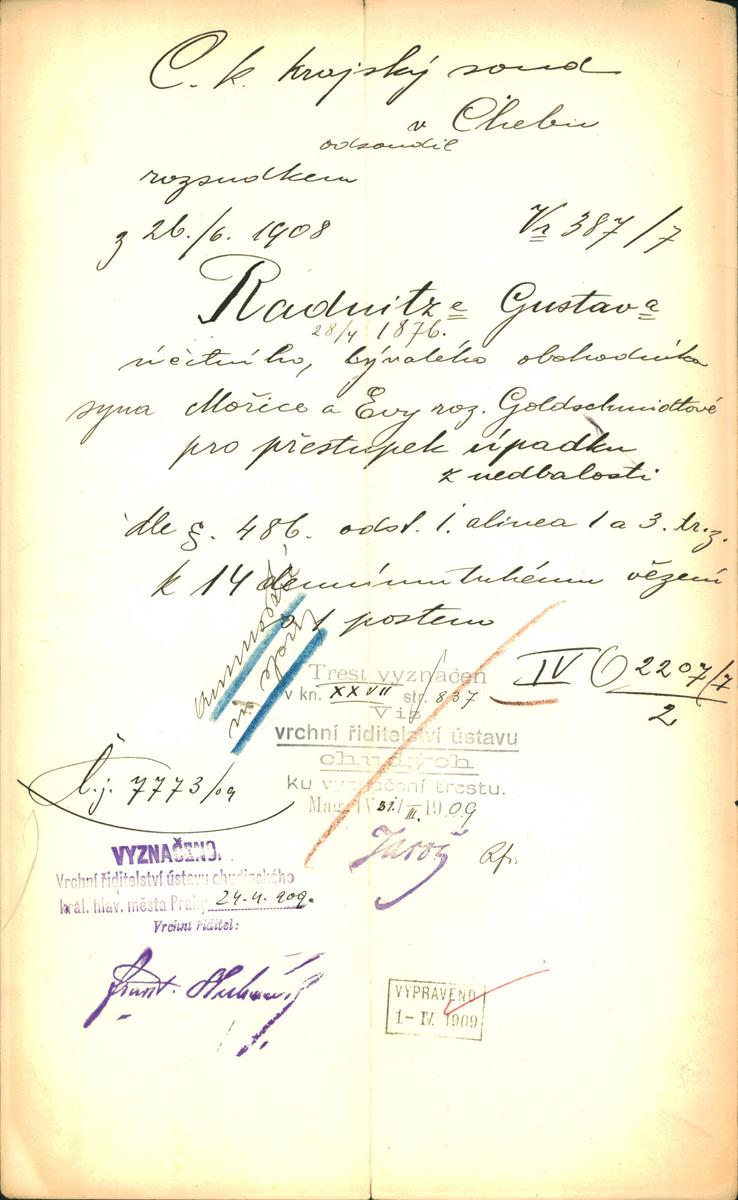 C. k. krajský soud
v Chebu
odsoudil
rozsudkem
z 26./6. 1908 Vr 387/7
Radnitze Gustava
28/4 1876.
účetního, bývalého obchodníka
syna Mořice a Evy roz. Goldschmidtové
pro přestupek úpadku
z nedbalosti
dle §. 486. odst. 1. alinea 1 a 3. tr. z.
k 14 dennímu tuhému vězení
a 1 postem
IV 2207/7
2
Trest vyznačen
v kn. XXVII str. 837
Viz
vrchní řiditelství ústavu
chudých
Ku vyznačení trestu.
Mag. IV 31/III. 1909
Č.j. 7773/09
Jaroš
VYZNAČENO.
Vrchní řiditelství ústavu chudinského
král. hlav. města Prahy 24.4. 909.
Vrchní řiditel:
Frant.
VYPRAVENO
1-IV. 1909